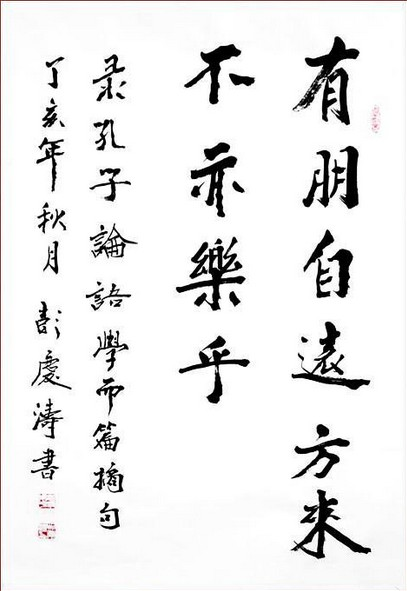 有朋自遠方來
不亦樂乎
录孔子論語學而篇摘句
丁亥年秋月 彭慶濤書